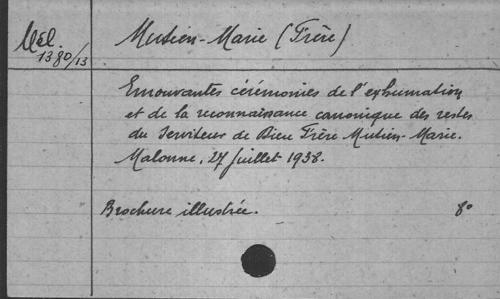 Mél.
1380/13
Mutien-Marie (Frère)
Emouvantes cérémonies de l'exhumation
et de la reconnaissance canonique des restes
du Serviteur de Dieu Frère Mutien-Marie.
Malonne, 27 juillet 1938.
Brochure illustrée. 8°